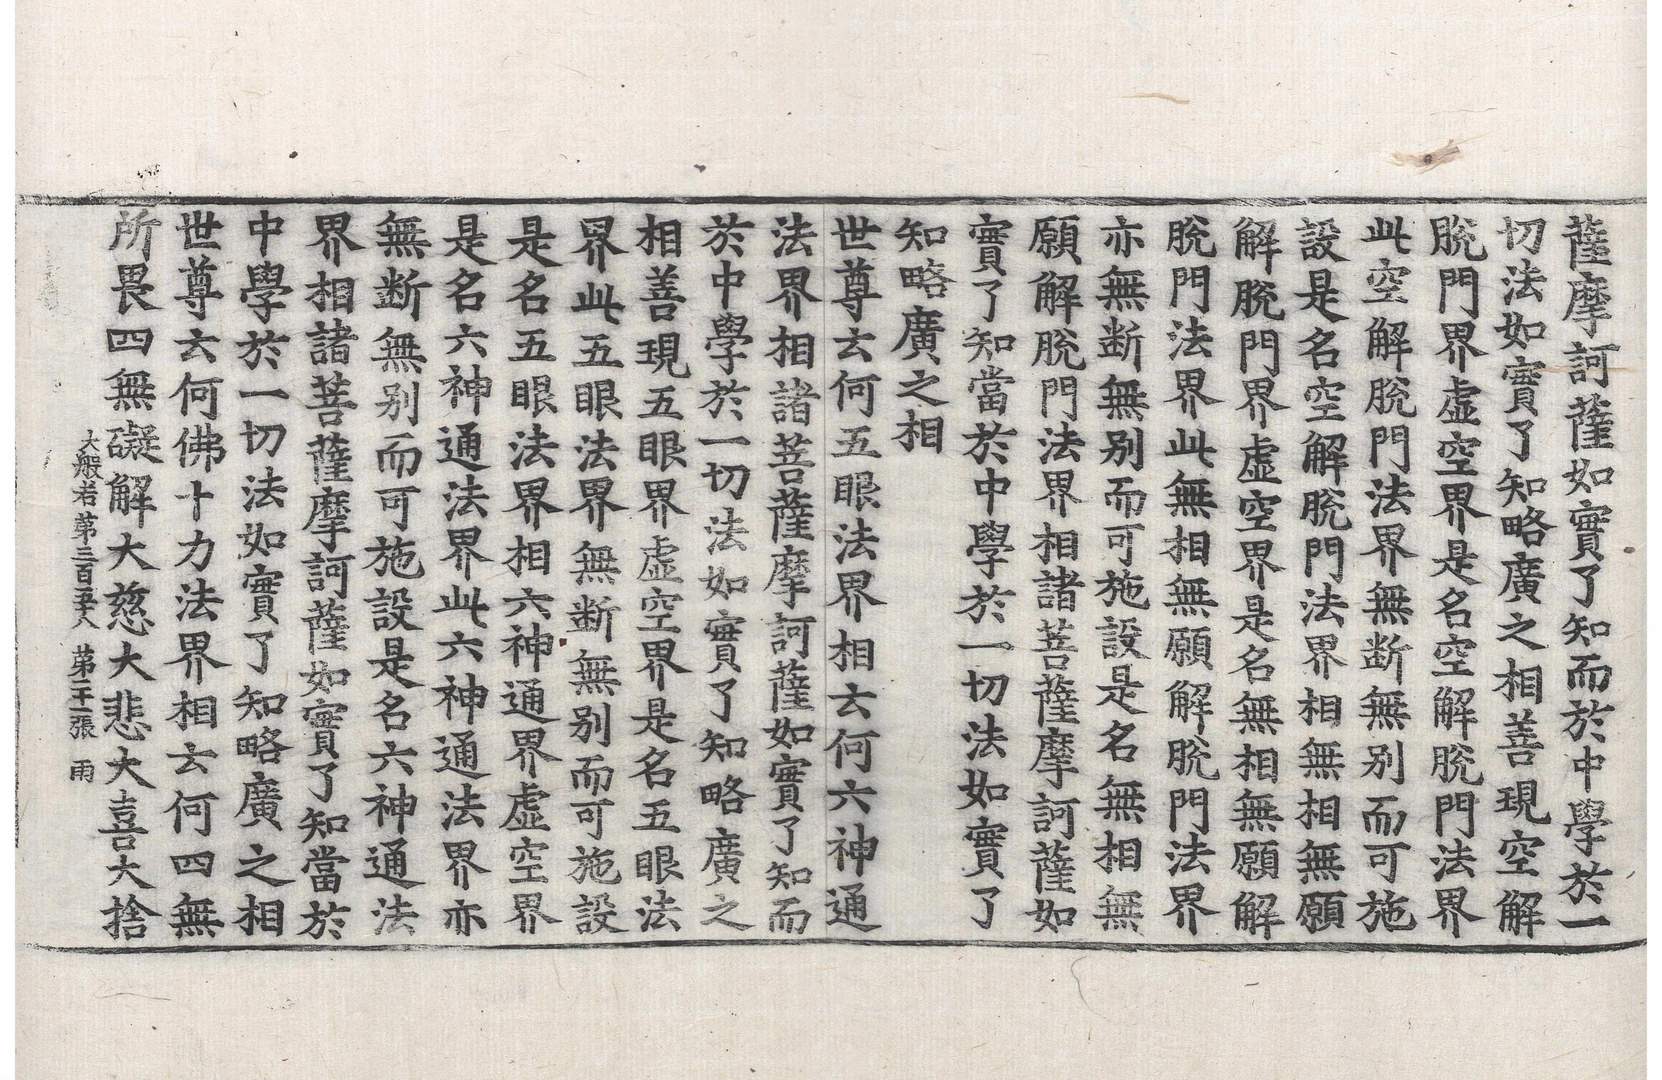 薩摩訶薩如實了知而於中學於一
切法如實了知略廣之相善現空解
脫門界虛空界是名空解脫門法界
此空解脫門法界無断無別而可施
設是名空解脫門法界相無相無願
解脫門界虛空界是名無相無願解
脫門法界此無相無願解脫門法界
亦無断無別而可施設是名無相無
願解脫門法界相諸菩薩摩訶薩如
實了知當於中學於一切法如實了
知略廣之相
世尊云何五眼法界相云何六神通
法界相諸菩薩摩訶薩如實了知而
於中學於一切法如實了知略廣之
相善現五眼界虛空界是名五眼法
界此五眼法界無断無別而可施設
是名五眼法界相六神通界虛空界
是名六神通法界此六神通法界亦
無断無別而可施設是名六神通法
界相諸菩薩摩訶薩如實了知當於
中學於一切法如實了知略廣之相
世尊云何佛十力法界相云何四無
所畏四無礙解大慈大悲大喜大捨
大般若第三百五十八 第二十一張 雨